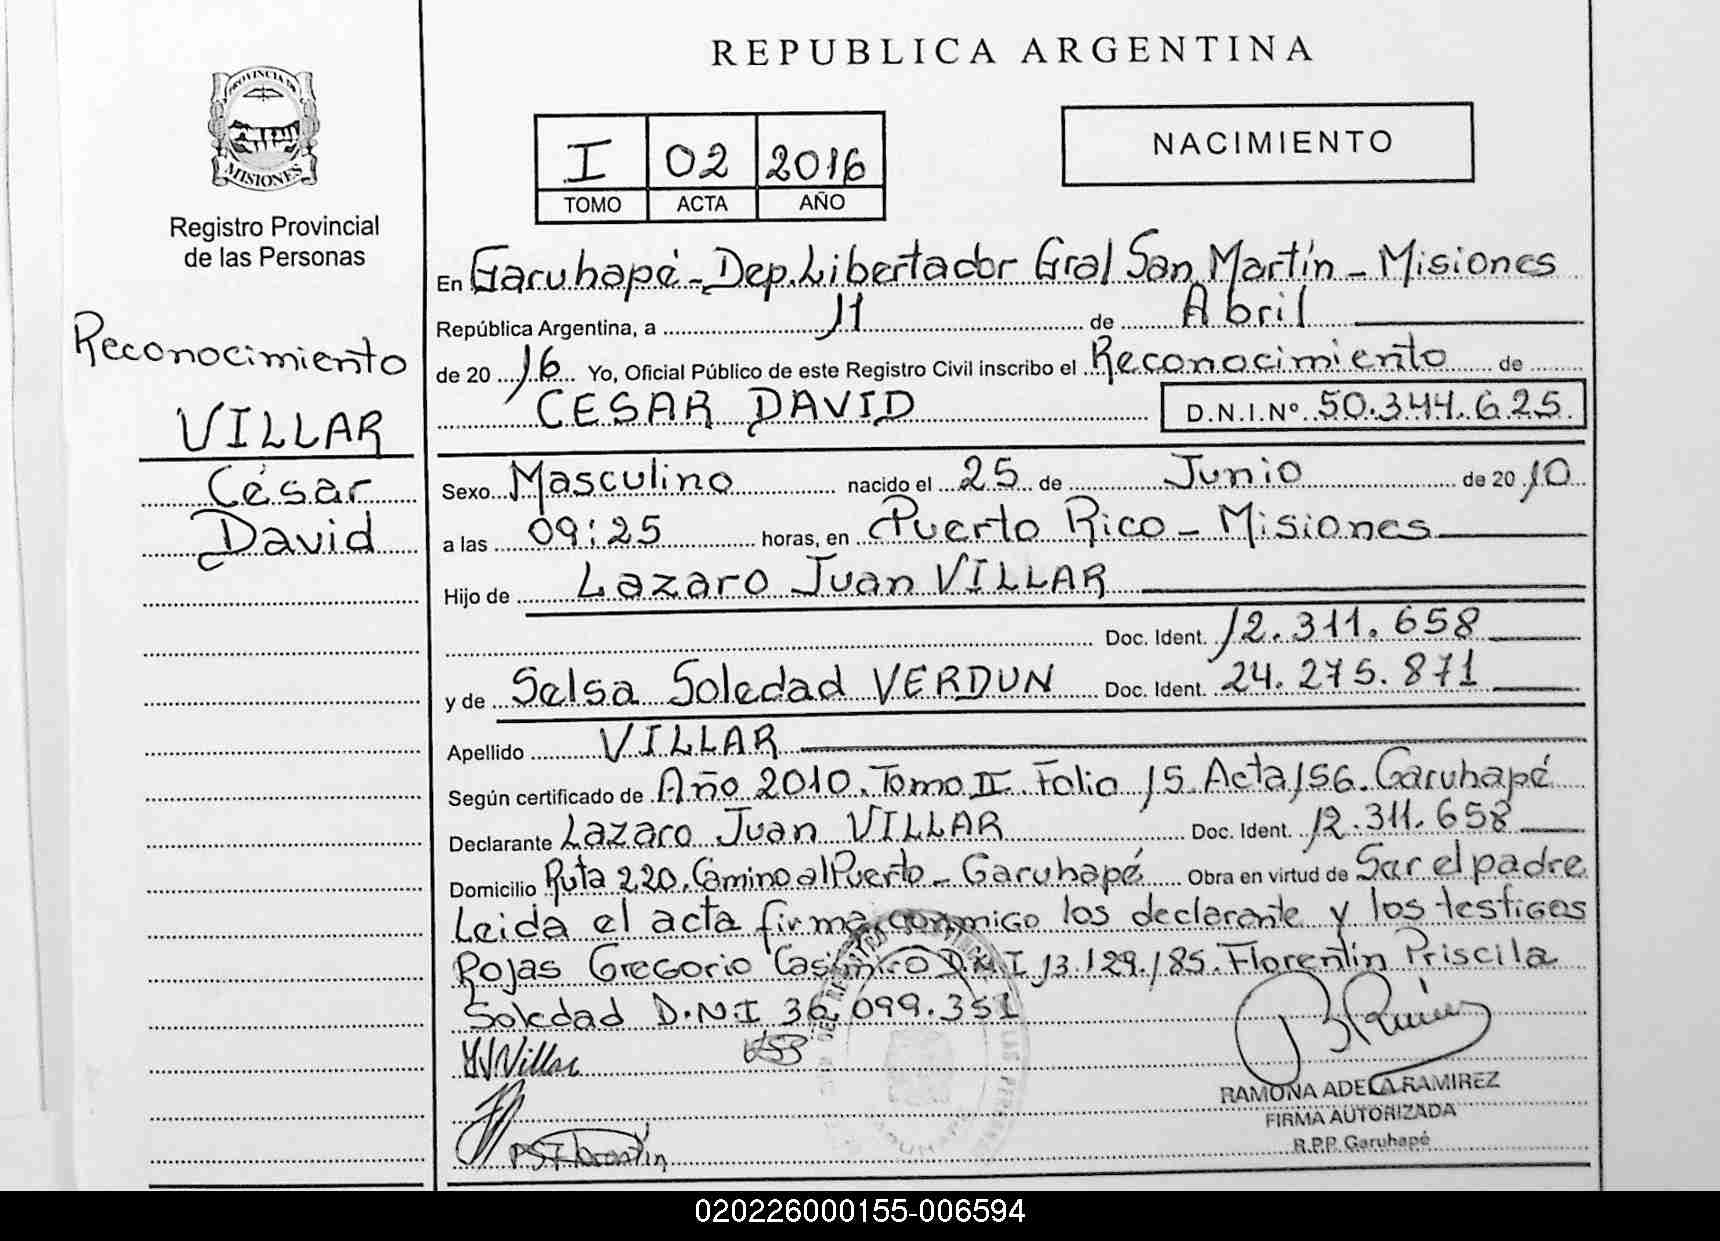 REPUBLICA ARGENTINA
PROVINCIA DE
MISIONES
Registro Provincial
de las Personas
I 02 2016
TOMO ACTA AÑO
NACIMIENTO
Reconocimiento
VILLAR
César
David
En Garuhapé - Dep. Libertador Gral San Martín - Misiones
República Argentina, a 11 de Abril
de 2016 Yo, Oficial Público de este Registro Civil inscribo el Reconocimiento de
CESAR DAVID D.N.I.Nº 50.344.625
Sexo Masculino nacido el 25 de Junio de 2010
a las 09:25 horas, en Puerto Rico - Misiones
Hijo de Lazaro Juan VILLAR
Doc. Ident. 12.311.658
y de Selsa Soledad VERDUN Doc. Ident. 24.275.871
Apellido VILLAR
Según certificado de Año 2010. Tomo II. Folio 15. Acta 156. Garuhapé
Declarante Lazaro Juan VILLAR Doc. Ident. 12.311.658
Domicilio Ruta 220. Camino al Puerto - Garuhapé Obra en virtud de Ser el padre
Leida el acta firma conmigo los declarante y los testigos
Rojas Gregorio Casimiro D.N.I 13.129.185. Florentin Priscila
Soledad D.N.I 36.099.351
Villar
RAMONA ADELA RAMIREZ
FIRMA AUTORIZADA
R.P.P. Garuhapé
PSFlorentin
020226000155-006594